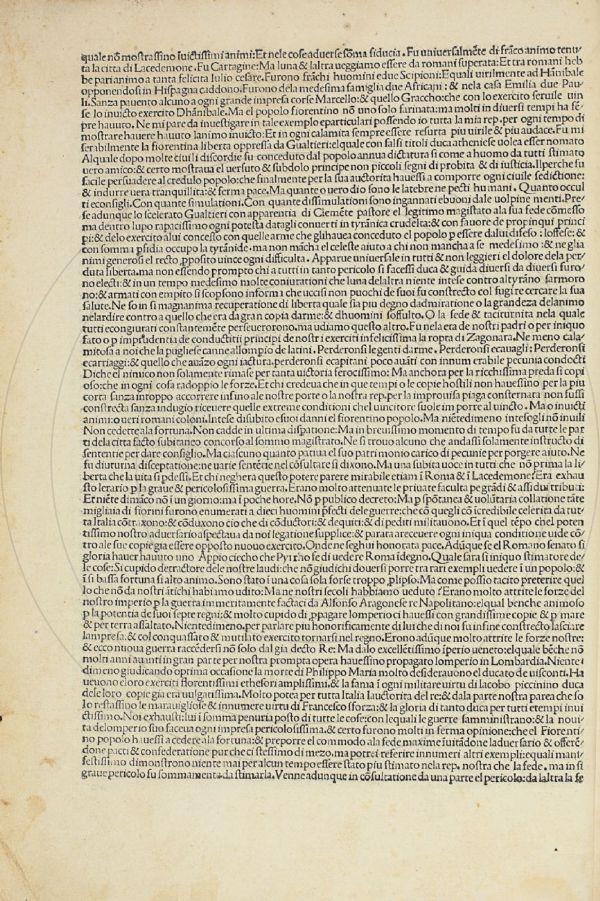 quale nō mostrassino iuictissimi animi: Et nele cose aduerse sōma fiducia. Fu uniuersalmēte di frāco animo tenu
ta la citta di Lacedemone. Fu Cartagine: Ma luna & laltra ueggiamo essere da romani superata: Et tra romani heb
be pari animo a tanta felicita Iulio cesare. Furono frāchi huomini edue Scipioni: Equali uirilmente ad Hānibale
opponendosi in Hispagna caddono. Furono dela medesima famiglia due Africani: & nela casa Emilia due Pau
li. Sanza pauento alcuno a ogni grande impresa corse Marcello: & quello Graccho: che con lo exercito seruile uin
se lo inuicto exercito Dhānibale. Ma el popolo fiorentino nō uno solo farinata: ma molti in diuersi tempi ha sē
pre hauuto. Ne mi pare da inuestigare in tale exemplo eparticulari possendo io tutta la mia rep. per ogni tempo di
mostrare hauere hauuto lanimo inuicto: Et in ogni calamita sempre essere resurta piu uirile & piu audace. Fu mi
serabilmente la fiorentina liberta oppressa da Gualtieri: elquale con falsi titoli duca atheniese uolea esser nomato
Alquale dopo molte ciuili discordie fu conceduto dal popolo annua dictatura si come a huomo da tutti stimato
uero amico: & certo mostraua el uersuto & subdolo principe non piccoli segni di probita & di iustitia. Ilperche fu
facile persuadere al credulo popolo: che finalmente per la sua auctorita hauessi a comporre ogni ciuile seditione:
& indurre uera tranquillita & ferma pace. Ma quante o uero dio sono le latebre ne pecti humani. Quanto occul
ti econsigli. Con quante simulationi. Con quante dissimulationi sono ingannati ebuoni dale uolpine menti. Pre
se adunque lo scelerato Gualtieri con apparentia di Clemēte pastore el legitimo magistrato ala sua fede cōmesso
ma dentro lupo rapacissimo ogni potesta datagli conuerti in tyrānica crudelta: & con fauore de propinqui princi
pi: & delo exercito alui concesso con quelle arme che glihauea conceduto el popolo p essere dalui difeso: loffese: &
con somma pfidia occupo la tyrānide. ma non mācha el celeste aiuto a chi non mancha a se medesimo: & ne glia
nimi generosi el recto pposito uince ogni difficulta. Apparue uniuersale in tutti & non leggieri el dolore dela per
duta liberta. ma non essendo prompto chi a tutti in tanto pericolo si facessi duca & guida diuersi da diuersi furo
no electi: & in un tempo medesimo molte coniurationi che luna delaltra niente intese contro altyrāno sarmoro
no: & armati con empito si scopsono informa che uccisi non pochi de suoi fu constrecto col fugire cercare la sua
salute. Ne so in si magnanima recuperatione di liberta quale sia piu degno dadmiratione o la grandeza delanimo
nelardire contro a quello che era da gran copia darme: & dhuomini soffulto. O la fede & taciturnita nela quale
tutti econgiurati constantemēte perseuerorono. ma udiamo questo altro. Fu nela eta de nostri padri o per iniquo
fato o p imprudentia de conductori principi de nostri exerciti infelicissima la ropta di Zagonara. Ne meno cala-
mitosa a noi che la pugliese canne allompio de latini. Perderonsi le genti darme. Perderonsi ecauagli: Perderonsi
ecarriaggi: & quello che auāzo ogni iactura. perderonsi ecapitani poco auāti con innumerabile pecunia condocti
Di che el nimico non solamente rimase per tanta uictoria ferocissimo: Ma anchora per la ricchissima preda si copi
oso: che in ogni cosa radoppio le forze. Et chi credeua che in que tempi o le copie hostili non hauessino per la piu
corta sanza intoppo accorrere infino ale nostre porte o la nostra rep. per la improuisa piaga consternata non fussi
constrecta sanza indugio riceuere quelle extreme conditioni chel uincitore suole imporre al uincto. Ma o inuicti
animi: o ueri romani coloni. Intese di subito esuoi danni el fiorentino popolo. Ma niētedimeno intesegli nō inuili
Non cedette ala fortuna. Non cadde in ultima dispatione: Ma in breuissimo momento di tempo fu da tutte le par
ti dela citta facto subitaneo concorso al sommo magistrato. Ne si trouo alcuno che andassi solamente instructo di
sententie per dare consiglio. Ma ciascuno quanto patiua el suo patrimonio carico di pecunie per porgere aiuto. Ne
fu diuturna disceptatione: ne uarie sentētie nel cōsultare si dixono. Ma una subita uoce in tutti che nō prima la li
berta che la uita si pdessi. Et chi neghera questo potere parere mirabile etiam ī Roma & ī Lacedemone? Era exhau
sto lerario p la graue & pericolosissima guerra. Erano molto attenuate le priuate faculta pe grādi & assidui tributi:
Et niētedimāco nō ī un giorno ma ī poche hore. Nō p publico decreto: Ma p spōtanea & uolūtaria collatione tāte
migliaia di fiorini furono enumerati a dieci huomini pfecti dele guerre: che cō quegli cō icredibile celerita da tut-
ta Italia cōtraxono: & cōduxono cio che di cōductori: & dequiti: & di pediti militauono. Et ī quel tēpo chel poten
tissimo nostro aduersario aspectaua da noi legatione supplice: & parata a receuere ogni iniqua conditione uide cō
tro ale sue copie gia essere opposto nuouo exercito. Onde ne seghui honorata pace. Adūque se el Romano senato si
gloria hauer hauuto uno Appio cieche che Pyrrho se di uedere Roma idegno. Quale sara si iniquo stimatore de-
le cose: Si cupido detractore dele nostre laudi: che nō giudichi douersi porre tra rari exempli uedere ī un popolo: &
ī si bassa fortuna si alto animo. Sono stato ī una cosa sola forse troppo plipso. Ma come possio tacito preterire quel
lo che nō da nostri ātichi habiamo udito: Ma ne nostri secoli habbiamo ueduto? Erano molto attrite le forze del
nostro imperio p la guerra immeritamente factaci da Alfonso Aragonese re Napolitano: elqual benche animoso
p la potentia de suoi septe regni: & molto cupido di ppagare lomperio: ci hauessi con grandissime copie & p mare
& per terra assaltato. Nientedimeno. per parlare piu honorificamente di lui che di noi fu in fine constrecto lasciare
lampresa: & col conquassato & mutilato exercito tornarsi nel regno. Erono adūque molto attrite le forze nostre:
& ecco nuoua guerra raccēdersi nō solo dal gia decto Re: Ma dallo excellētissimo īperio ueneto: elquale bēche nō
molti anni auanti in gran parte per nostra prompta opera hauessino propagato lomperio in Lombardia. Niente
dimeno giudicando optima occasione la morte di Philippo Maria molto desiderauono el ducato de uisconti. Ha
ueuono eloro exerciti florentissimi ethefori amplissimi. & la fama ī ogni militare uirtu di Iacobo piccinino duca
dele loro copie gia era uulgatissima. Molto potea per tutta Italia lauctorita del re: & dala parte nostra parea che so
lo restassino le marauigliose & innumere uirtu di Francesco sforza: & la gloria di tanto duca per tutti etempi inui
ctissimo. Noi exhausti: lui ī somma penuria posto di tutte le cose: con lequali le guerre samministrano: & la noui
ta delomperio suo facea ogni impresa pericolosissima. & certo furono molti in ferma opinione: che el Fiorenti-
no popolo hauessi a cedere ala fortuna: & preporre el commodo ala fede maxime īuitādone laduersario & offerē-
done pacti & confederatione pur che ci stessimo di mezo. ma potrei referire innumeri altri exempli: equali mani-
festissimo dimonstrono niente mai per alcun tempo essere stato piu stimato nela rep. nostra che la fede. ma in si
graue pericolo fu sommamente da stimarla. Venne adunque in cōsultatione da una parte el pericolo: da laltra la fe